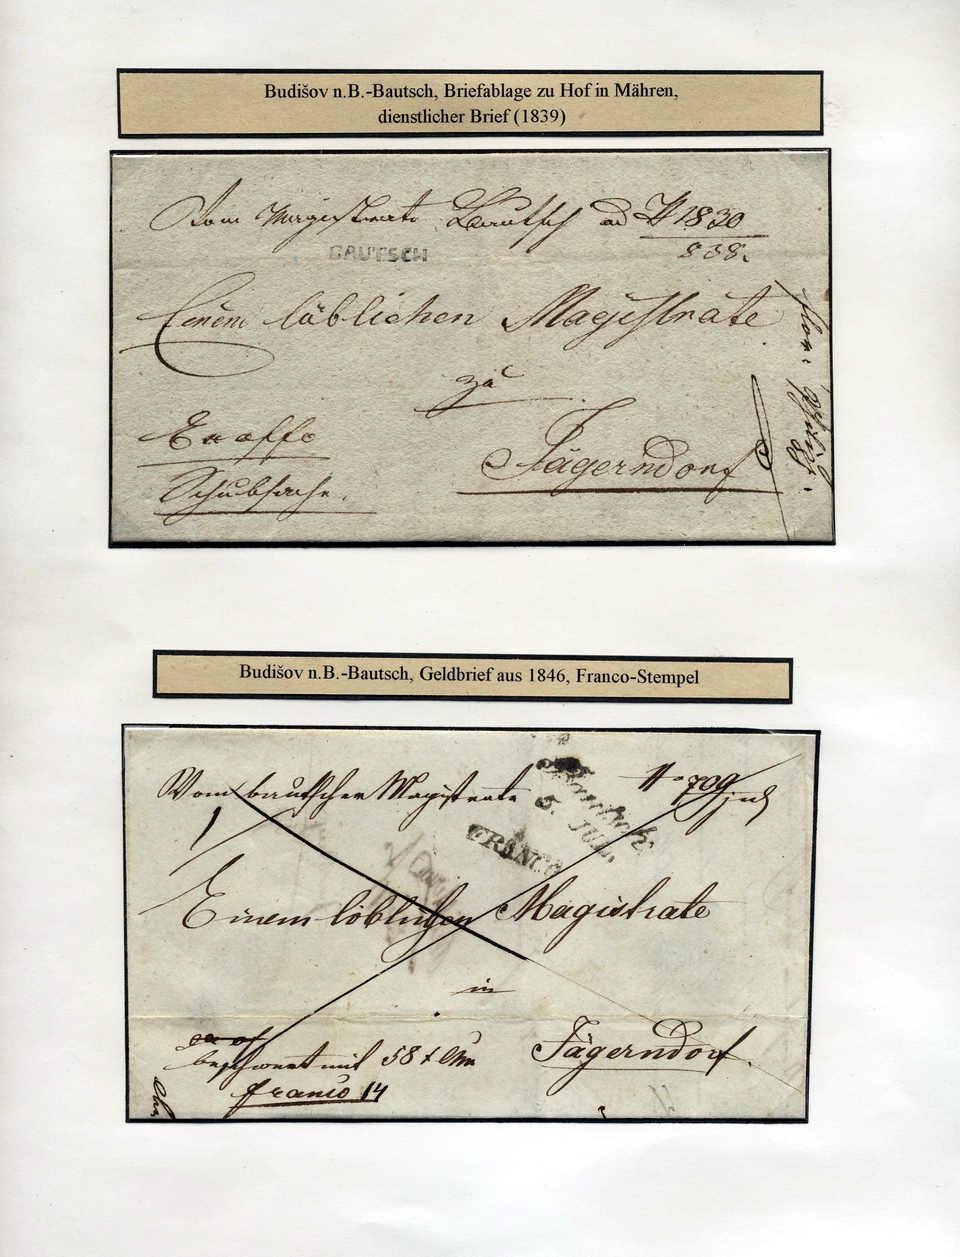 Budišov n.B.-Bautsch, Briefablage zu Hof in Mähren,
dienstlicher Brief (1839)
Vom Magistrate Bautsch ad № 1830
838.
BAUTSCH
Einem löblichen Magistrate
zu
Ex offo
Jägerndorf
Schubsache.
Budišov n.B.-Bautsch, Geldbrief aus 1846, Franco-Stempel
Vom bautscher Magistrate
709
Bautsch
5. JUL.
FRANCO
Einem löblichen Magistrate
in
beschwert mit 58 x
Jägerndorf.
franco 14